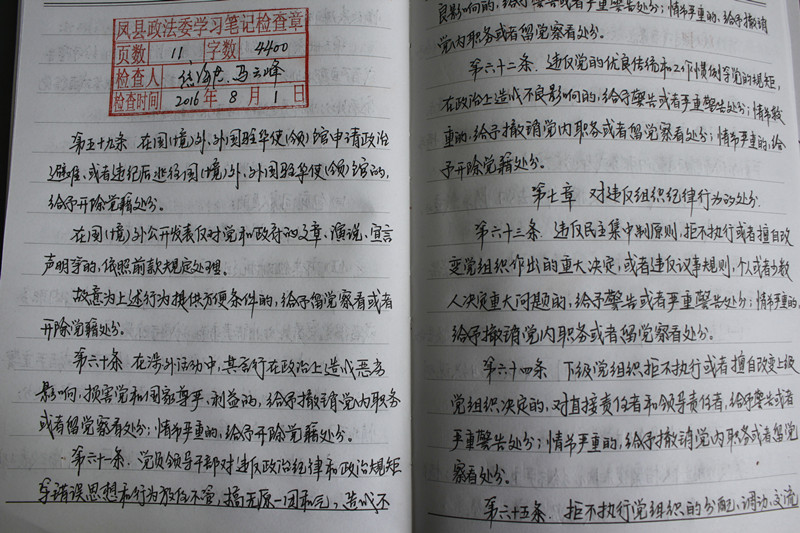 凤县政法委学习笔记检查章
页数 11 字数 4400
检查人 马云峰
检查时间 2016年8月1日
第五十九条 在国(境)外、外国驻华使(领)馆申请政治
避难,或者违纪后逃往国(境)外、外国驻华使(领)馆的,
给予开除党籍处分。
在国(境)外公开发表反对党和政府的文章、演说、宣言
声明等的,依照前款规定处理。
故意为上述行为提供方便条件的,给予留党察看或者
开除党籍处分。
第六十条 在涉外活动中,其言行在政治上造成恶劣
影响,损害党和国家尊严、利益的,给予撤销党内职务
或者留党察看处分;情节严重的,给予开除党籍处分。
第六十一条 党员领导干部对违反政治纪律和政治规矩
等错误思想和行为放任不管,搞无原则一团和气,造成不
良影响的,给予警告或者严重警告处分;情节严重的,给予撤销
党内职务或者留党察看处分。
第六十二条 违反党的优良传统和工作惯例等党的规矩,
在政治上造成不良影响的,给予警告或者严重警告处分;情节较
重的,给予撤销党内职务或者留党察看处分;情节严重的,给
予开除党籍处分。
第七章 对违反组织纪律行为的处分
第六十三条 违反民主集中制原则,拒不执行或者擅自改
变党组织作出的重大决定,或者违反议事规则,个人或者少数
人决定重大问题的,给予警告或者严重警告处分;情节严重的,
给予撤销党内职务或者留党察看处分。
第六十四条 下级党组织拒不执行或者擅自改变上级
党组织决定的,对直接责任者和领导责任者,给予警告或者
严重警告处分;情节严重的,给予撤销党内职务或者留党
察看处分。
第六十五条 拒不执行党组织的分配、调动、交流